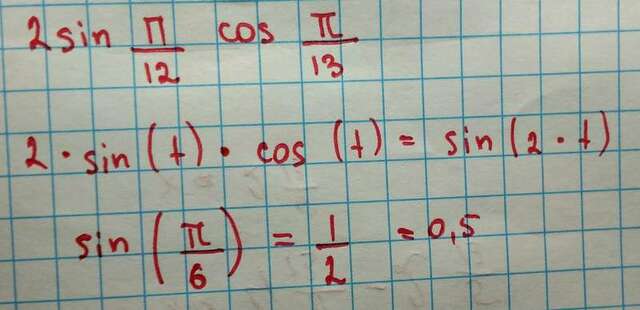 2 sin π/12 cos π/13
2 · sin (t) · cos (t) = sin (2 · t)
sin (π/6) = 1/2 = 0,5